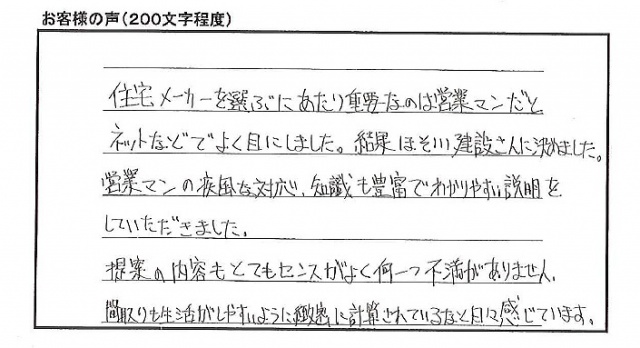 お客様の声(200文字程度)
住宅メーカーを選ぶにあたり重要なのは営業マンだと
ネットなどでよく目にしました。結果ほそい建設さんに決めました。
営業マンの疾風な対応、知識も豊富でわかりやすい説明を
していただきました。
提案の内容もとてもセンスがよく何一つ不満がありません。
間取りも生活がしやすいように緻密に計算されているなと日々感じています。